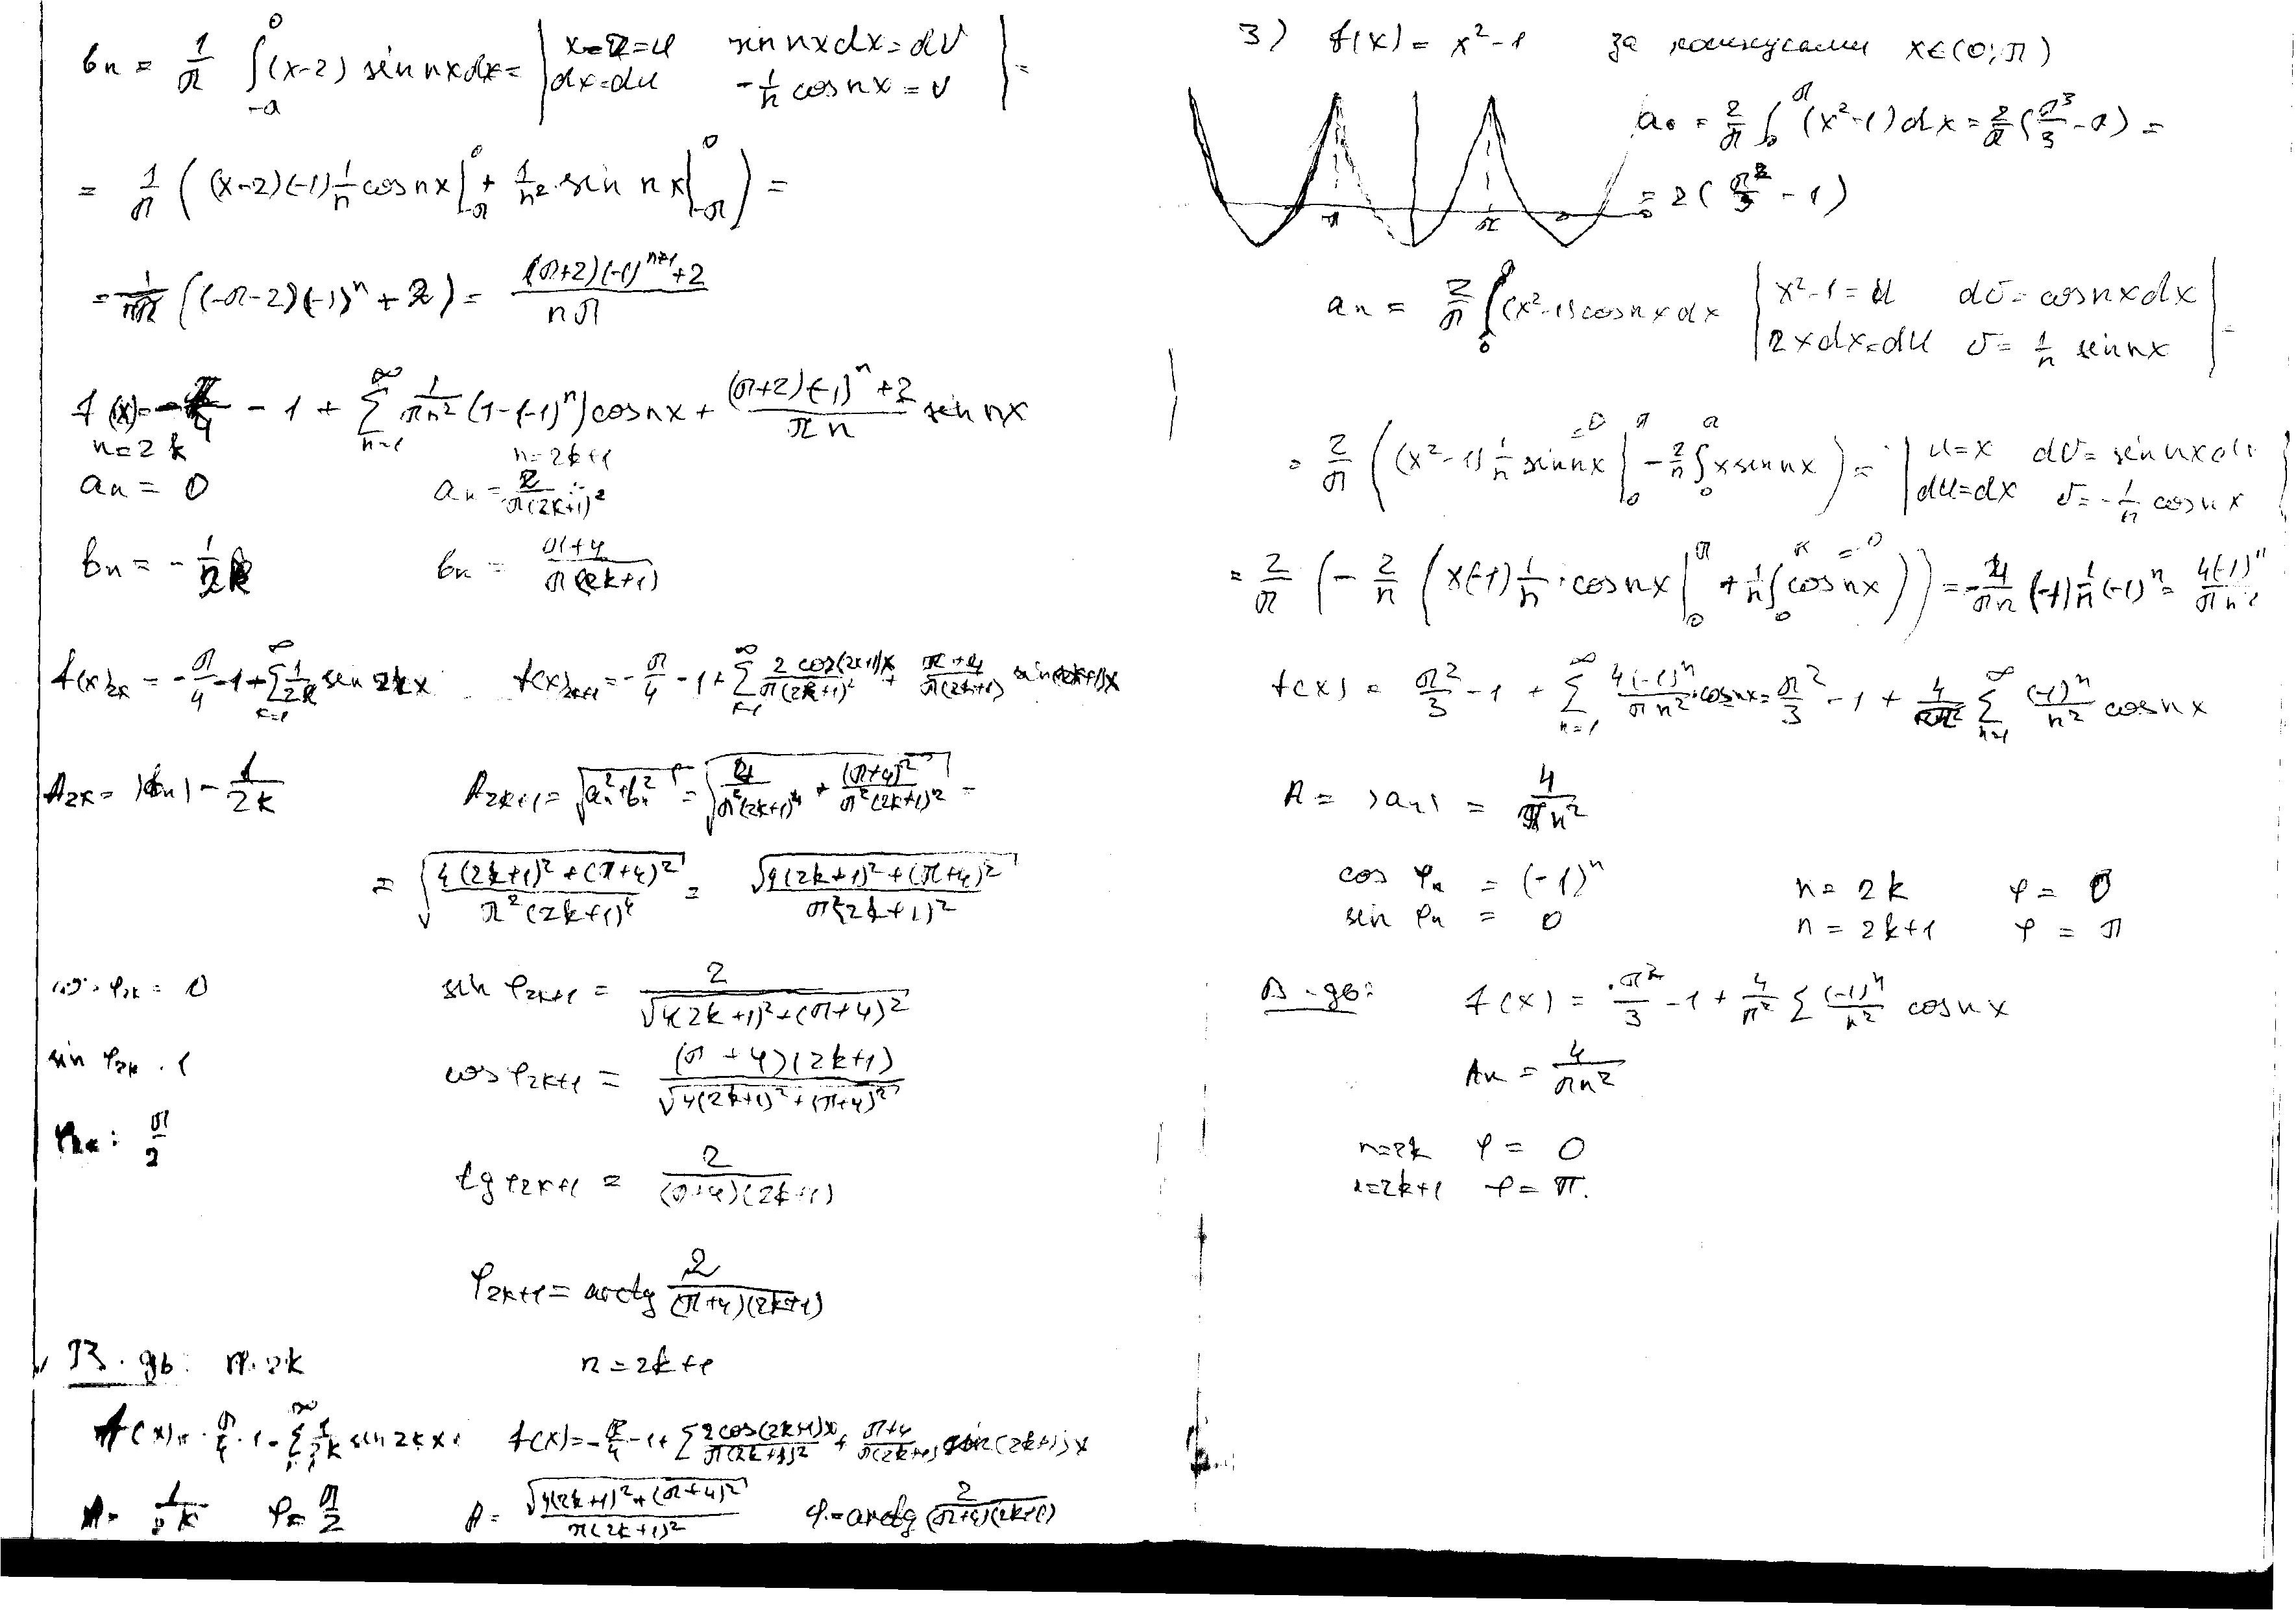 bₙ = 1/π ∫₋π⁰ (x-2) sin nx dx = | x-2=u sin nx dx = dV dx=du -1/n cos nx = v | =
= 1/π ( (x-2)(-1) 1/n cos nx |₋π⁰ + 1/n² sin nx |₋π⁰ ) =
= 1/πn ((-π-2)(-1)ⁿ + 2) = ((π+2)(-1)ⁿ⁺¹+2)/(nπ)
f(x) = -π/4 - 1 + Σₙ₌₁^∞ 1/(πn²) (1-(-1)ⁿ) cos nx + ((π+2)(-1)ⁿ+2)/(πn) sin nx
n=2k n=2k+1
aₙ = 0 aₙ = 2/(π(2k+1)²)
bₙ = -1/2k bₙ = (π+4)/(π(2k+1))
f(x)₂ₖ = -π/4 -1 + Σₖ₌₁^∞ 1/2k sin 2kx f(x)₂ₖ₊₁ = -π/4 - 1 + Σₖ₌₁^∞ 2cos(2k+1)x/(π(2k+1)²) + (π+4)/(π(2k+1)) sin(2k+1)x
A₂ₖ = |bₙ| - 1/2k A₂ₖ₊₁ = √(aₙ²+bₙ²) = √(4/(π²(2k+1)⁴) + (π+4)²/(π²(2k+1)²)) =
= √((4(2k+1)²+(π+4)²)/(π²(2k+1)⁴)) = √(4(2k+1)²+(π+4)²)/(π(2k+1)²)
cos φ₂ₖ = 0 sin φ₂ₖ₊₁ = 2/√(4(2k+1)²+(π+4)²)
sin φ₂ₖ . 1 cos φ₂ₖ₊₁ = (π+4)(2k+1)/√(4(2k+1)²+(π+4)²)
φ₂ₖ : π/2 tg φ₂ₖ₊₁ = 2/((π+4)(2k+1))
φ₂ₖ₊₁ = arctg 2/((π+4)(2k+1))
В-дь: n=2k n=2k+1
f(x) = -π/4 - 1 - Σ^∞ 1/2k sin 2kx f(x) = -π/4 - 1 + Σ 2cos(2k+1)x/(π(2k+1)²) + (π+4)/(π(2k+1)) sin(2k+1)x
A = 1/2k φ = π/2 A = √(4(2k+1)²+(π+4)²)/(π(2k+1)²) φ = arctg 2/((π+4)(2k+1))
3) f(x) = x²-1 за косинусами x∈(0;π)
a₀ = 2/π ∫₀^π (x²-1) dx = 2/π (π³/3 - π) =
= 2(π²/3 - 1)
-π π
aₙ = 2/π ∫₀^π (x²-1) cos nx dx | x²-1=u dv = cos nx dx 2xdx=du v = 1/n sin nx | =
= 2/π ( (x²-1) 1/n sin nx |₀^π =0 - 2/n ∫₀^π x sin nx ) = | u=x dv = sin nx dx du=dx v = -1/n cos nx |
= 2/π (-2/n (x(-1) 1/n · cos nx |₀^π + 1/n ∫₀^π cos nx =0)) = -4/πn (-1) 1/n (-1)ⁿ = 4(-1)ⁿ/πn²
f(x) = π²/3 - 1 + Σₙ₌₁^∞ 4(-1)ⁿ/πn² · cos nx = π²/3 - 1 + 4/π² Σₙ₌₁^∞ (-1)ⁿ/n² cos nx
A = |aₙ| = 4/πn²
cos φₙ = (-1)ⁿ n = 2k φ = 0
sin φₙ = 0 n = 2k+1 φ = π
В-дь: f(x) = π²/3 - 1 + 4/π² Σ (-1)ⁿ/n² cos nx
Aₙ = 4/πn²
n=2k φ = 0
n=2k+1 φ = π.